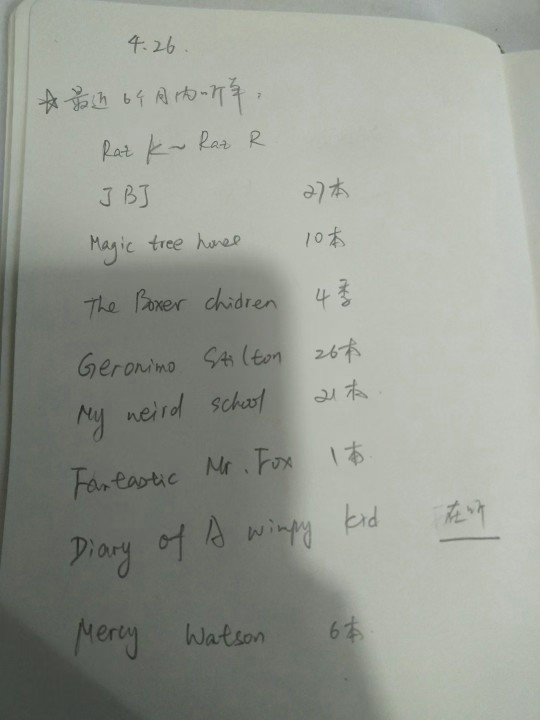 4.26.
☆ 最近6个月内听单:
Raz K~ Raz R
JBJ 27本
Magic tree house 10本
The Boxer chidren 4季
Geronimo Stilton 26本
My weird school 21本.
Fantastic Mr. Fox 1本.
Diary of A wimpy kid 在听
Mercy Watson 6本.